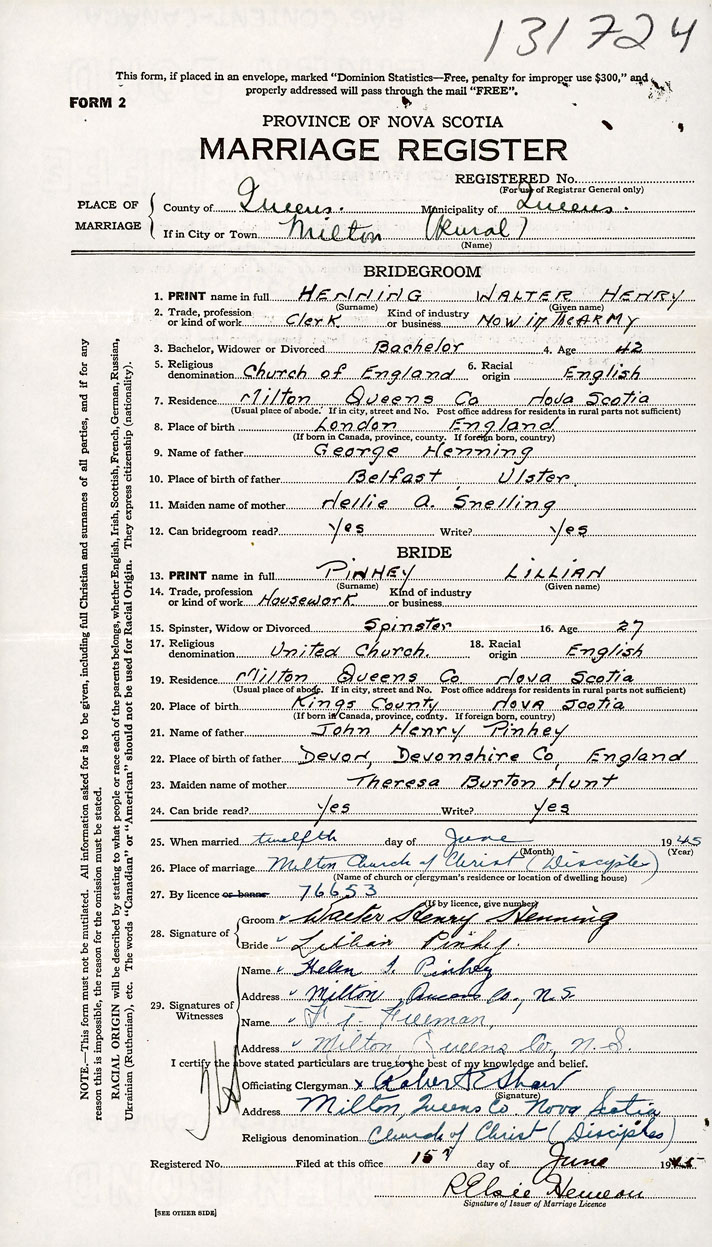 131724
This form, if placed in an envelope, marked “Dominion Statistics—Free, penalty for improper use $300,” and
properly addressed will pass through the mail “FREE”.
FORM 2
PROVINCE OF NOVA SCOTIA
MARRIAGE REGISTER
REGISTERED No.
(For use of Registrar General only)
PLACE OF MARRIAGE
County of Queens. Municipality of Queens.
If in City or Town Milton (Rural)
(Name)
BRIDEGROOM
1. PRINT name in full HENNING WALTER HENRY
(Surname) (Given name)
2. Trade, profession or kind of work Clerk Kind of industry or business NOW IN The ARMY
3. Bachelor, Widower or Divorced Bachelor 4. Age 42
5. Religious denomination Church of England 6. Racial origin English
7. Residence Milton Queens Co Nova Scotia
(Usual place of abode. If in city, street and No. Post office address for residents in rural parts not sufficient)
8. Place of birth London England
(If born in Canada, province, county. If foreign born, country)
9. Name of father George Henning
10. Place of birth of father Belfast, Ulster.
11. Maiden name of mother Nellie A. Snelling
12. Can bridegroom read? Yes Write? Yes
BRIDE
13. PRINT name in full PINHEY LILLIAN
(Surname) (Given name)
14. Trade, profession or kind of work Housework Kind of industry or business
15. Spinster, Widow or Divorced Spinster 16. Age 27
17. Religious denomination United Church. 18. Racial origin English
19. Residence Milton Queens Co Nova Scotia
(Usual place of abode. If in city, street and No. Post office address for residents in rural parts not sufficient)
20. Place of birth Kings County Nova Scotia
(If born in Canada, province, county. If foreign born, country)
21. Name of father John Henry Pinhey
22. Place of birth of father Devon, Devonshire Co, England
23. Maiden name of mother Theresa Burton Hunt
24. Can bride read? Yes Write? Yes
25. When married twelfth day of June 1945
(Month) (Year)
26. Place of marriage Milton Church of Christ (Disciples)
(Name of church or clergyman's residence or location of dwelling house)
27. By licence or banns 76653
(If by licence, give number)
28. Signature of Groom Walter Henry Henning
Bride Lillian Pinhey.
29. Signatures of Witnesses
Name Helen Pinhey
Address Milton, Queens Co., N.S.
Name Freeman,
Address Milton, Queens Co., N.S.
I certify the above stated particulars are true to the best of my knowledge and belief.
Officiating Clergyman x Robert E Shaw
(Signature)
Address Milton, Queens Co Nova Scotia
Religious denomination Church of Christ (Disciples)
Registered No. Filed at this office 15 day of June 1945
R Elsie Hemeon
Signature of Issuer of Marriage Licence
[SEE OTHER SIDE]
NOTE.—This form must not be mutilated. All information asked for is to be given, including full Christian and surnames of all parties, and if for any
reason this is impossible, the reason for the omission must be stated.
RACIAL ORIGIN will be described by stating to what people or race each of the parents belongs, whether English, Irish, Scottish, French, German, Russian,
Ukrainian (Ruthenian), etc. The words “Canadian” or “American” should not be used for Racial Origin. They express citizenship (nationality).